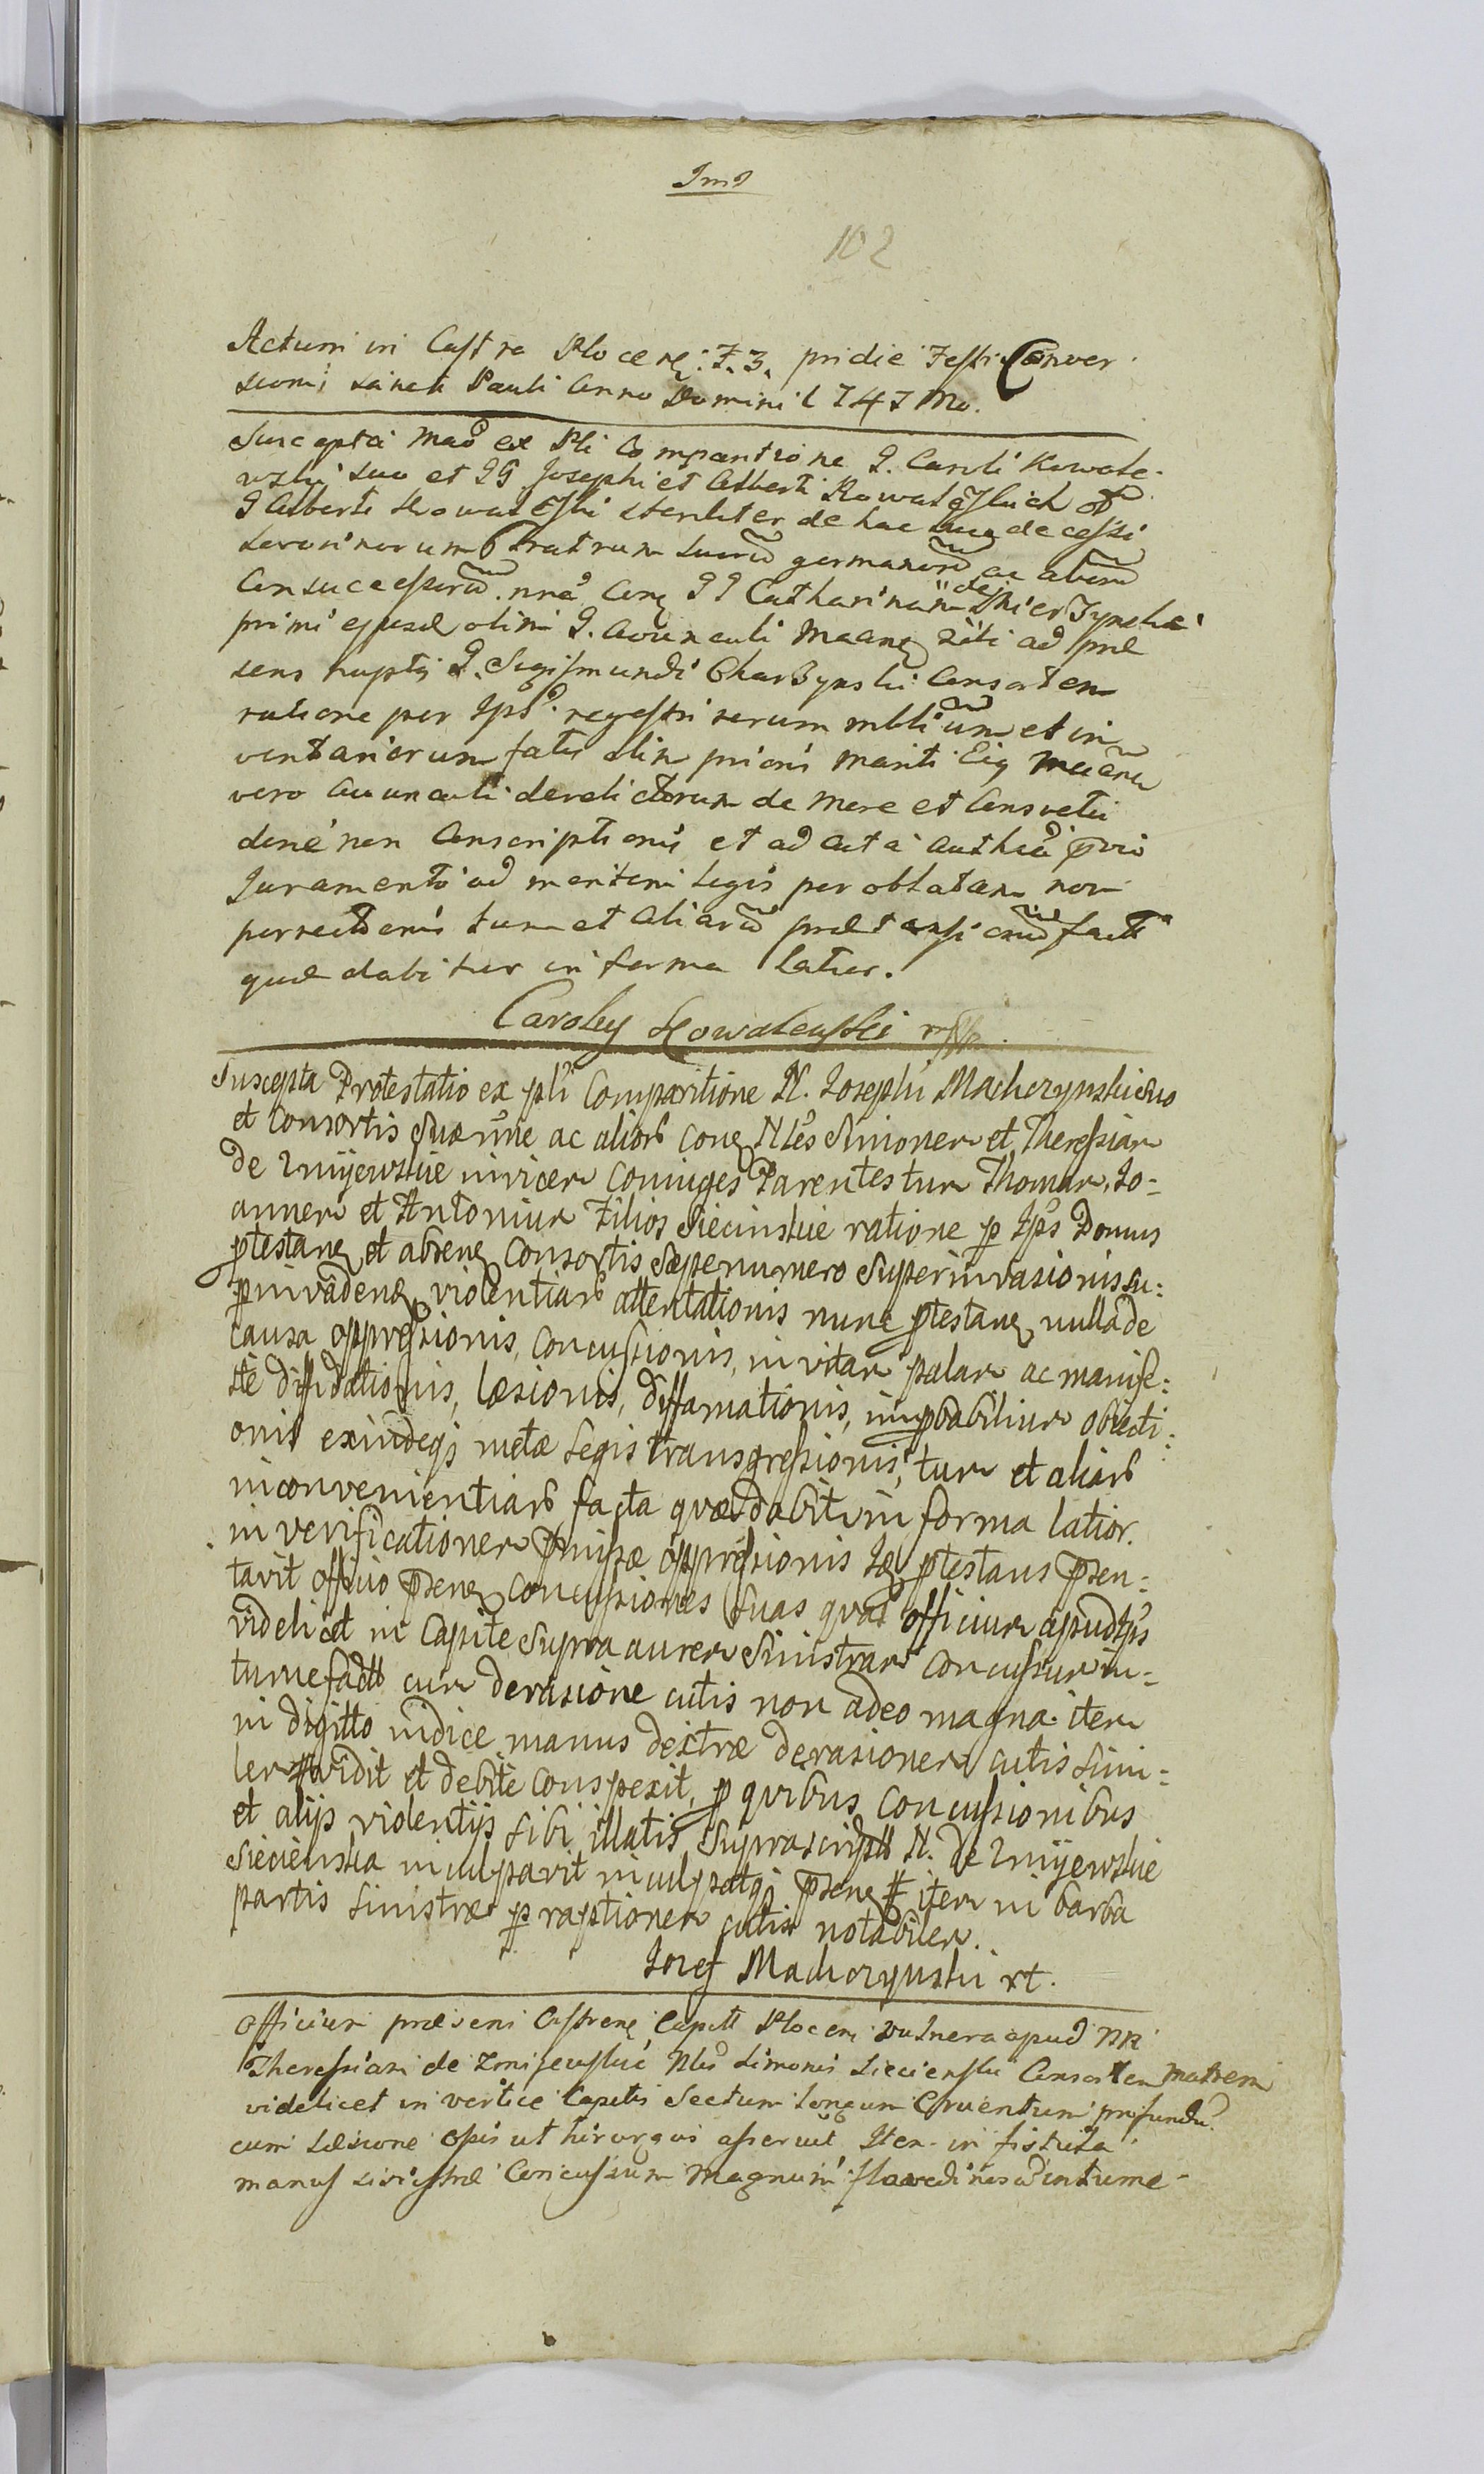 Jmd
102
Actum in Castro Plocen: F. 3. pridie Festi Conver
sionis sancti Pauli Anno Domini 1747 Mo.
Suscepta ex Pli Comparitione G. Caroli Kowale-
wski suo et GG Josephi et Alberti Kowalewskich
G Alberti Kowalewski steriliter de hac luce decessi
Fratrum suorū germanorū ac aliorū
Consuccessorū nne Conq GG Catharinam de
primi ejusd olim G. Avunculi ad præ
sens nuptā G. Sigismundi Charzynski Consortem
ratione per Ips regestri rerum mbliūm et in
ventariorum fatis olim prioris mariti Eiq
vero Avunculi derelictorum de More et Consvetu
dine non Conscriptionis et ad acta Authca pvio
Juramento ad mentem legis per oblatam non
porrectionis tum et aliarū prætensionū facta
quæ dabitur in forma latior.
Carolus Kowalewski mpp.
Suscepta Protestatio ex pli Comparitione N. Josephi Machczynski suo
et Consortis suæ nne ac alior Conq NNles Simonem et Theressiam
de Zmijewskie invicem Coniuges Parentes tum Thomam, Jo=
annem et Antonium Filios Siecinskie ratione p Jps Domus
ptestanq et absenq Consortis sæpenumero Superinvasionis su:
pinvadenq violentiar attentationis nunc ptestanq nulla de
causa oppressionis, concussionis, in vitam palam ac manife:
ste diffidationis, læsionis, diffamationis, impbabilium obiecti:
onis exindeqj metæ Legis transgressionis, tum et aliar
inconvenientiar facta quæ dabitr in forma latior.
in verificationem pmissæ oppressionis Jdq ptestans psen:
tavit officio psenq concussiones suas quas officium apud Jps
videlicet in Capite supra aurem Sinistram concussum in=
tumefactt cum derasione cutis non adeo magna. item
in digitto indice manus dextræ derasionem cutis simi=
lem vidit et debite conspexit, p quibus concussionibus
et alijs violentijs sibi illatis suprascriptt N. De Zmijewskie
Siecienska inculpavit inculpatqj psenq item in barba
partis sinistræ p raptionem cutis notabilem.
Jozef Machczynski rt.
Officium præsens Castrenq Capitt Plocen vulnera apud NN
Theressiam de Zmijewskie Nlis Simonis Siecienski Consortem matrem
videlicet in vertice Capitis Sectum longum Cruentum profundū
cum læsione ossis ut hirurgus asseruit Item in fistula
manus sinistræ Concussum magnum intume-